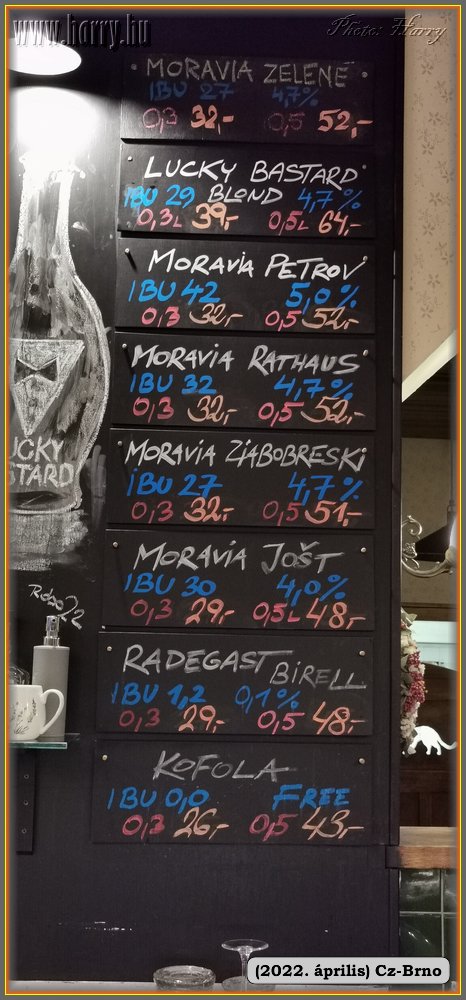 www.horry.hu
Photo: Horry
MORAVIA ZELENÉ
IBU 27 4,7%
0,3 32,- 0,5 52,-
LUCKY BASTARD
IBU 29 BLOND 4,7%
0,3L 39,- 0,5L 64,-
MORAVIA PETROV
IBU 42 5,0%
0,3 32,- 0,5 52,-
MORAVIA RATHAUS
IBU 32 4,7%
0,3 32,- 0,5 52,-
MORAVIA ŽABOBRESKÝ
IBU 27 4,7%
0,3 32,- 0,5 51,-
MORAVIA JOŠT
IBU 30 4,0%
0,3 29,- 0,5L 48,-
RADEGAST BIRELL
IBU 1,2 0,1%
0,3 29,- 0,5 48,-
KOFOLA
IBU 0,0 FREE
0,3 26,- 0,5 43,-
UCKY
STARD
(2022. április) Cz-Brno